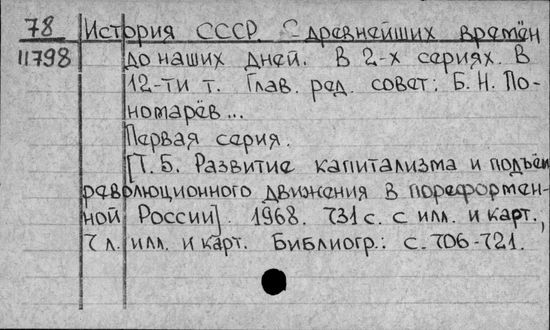 78 История СССР. С древнейших времён
11798 до наших дней. В 2-х сериях. В
12-ти т. Глав. ред. совет: Б. Н. По-
номарёв...
Первая серия.
[Т. 5. Развитие капитализма и подъём
революционного движения в пореформен-
ной России]. 1968. 731 с. с илл. и карт.,
7 л. илл. и карт. Библиогр.: с. 706-721.